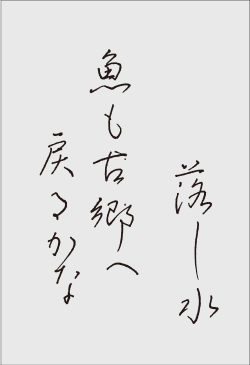 落し水
魚も古郷へ
戻るかな